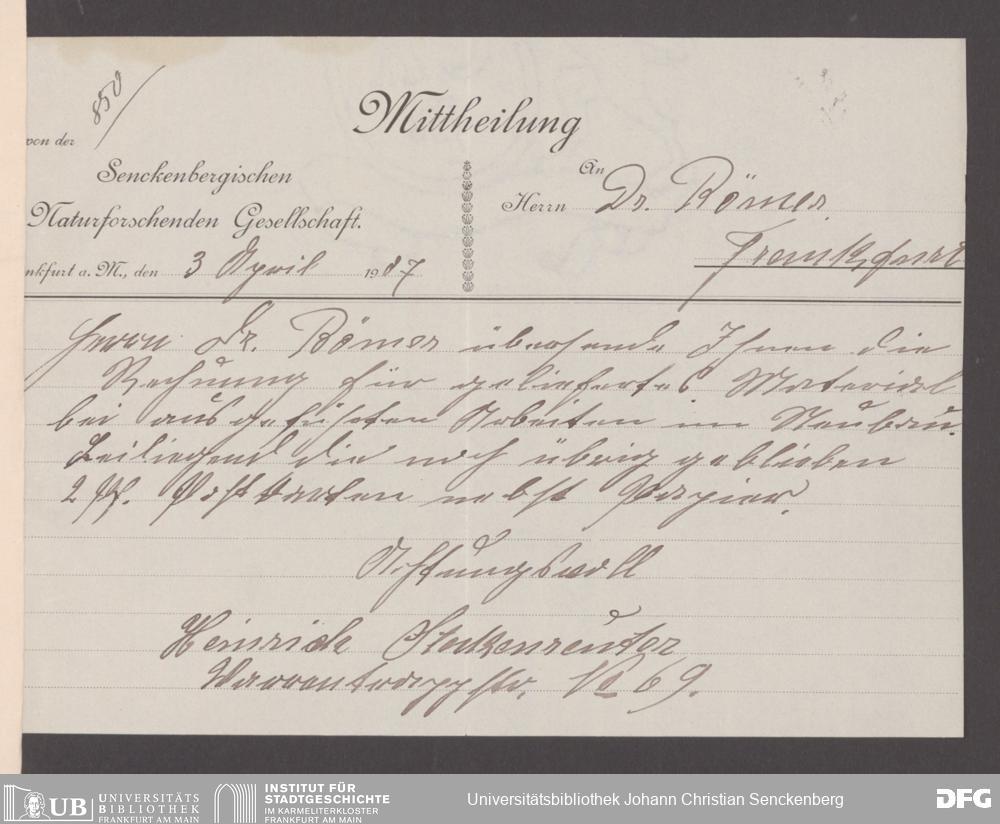 850
Mittheilung
von der
Senckenbergischen
Naturforschenden Gesellschaft.
nkfurt a. M., den 3 April 1907
An
Herrn Dr. Römer.
Frankfurt
Herrn Dr. Römer übersende Ihnen die
Rechnung für geliefertes Material
bei ausgeführten Arbeiten im Neubau.
Beiliegend die noch übrig geblieben
2 Postkarten nebst Papier.
Achtungsvoll
Heinrich Stockenreuter
Varrentrappstr. No 69.
UB UNIVERSITÄTS
BIBLIOTHEK
FRANKFURT AM MAIN
INSTITUT FÜR
STADTGESCHICHTE
IM KARMELITERKLOSTER
FRANKFURT AM MAIN
Universitätsbibliothek Johann Christian Senckenberg
DFG